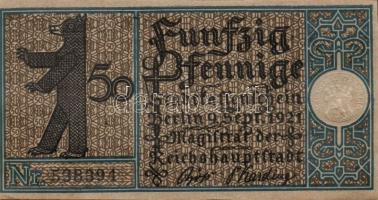 Funfzig
50 Pfennige
Berlin 9. Sept. 1921
Magistrat der
Reichshauptstadt
Nr. 538394